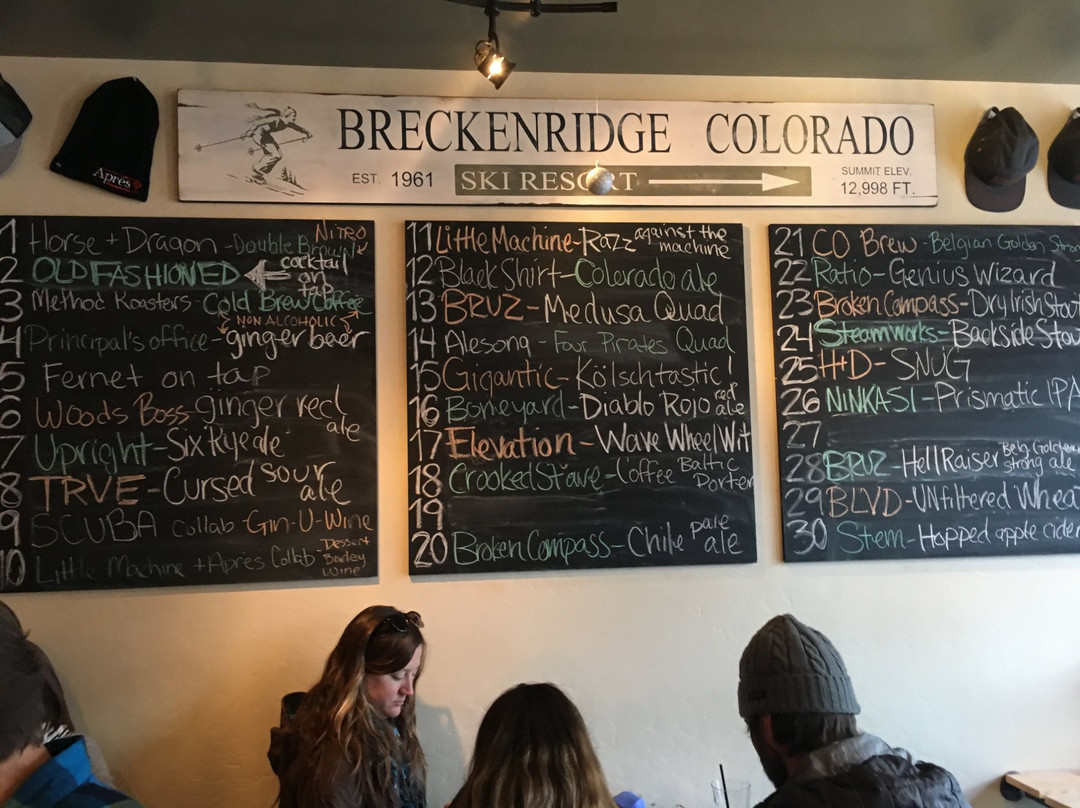 Après
BRECKENRIDGE COLORADO
EST. 1961
SKI RESORT
SUMMIT ELEV.
12,998 FT.
1 Horse + Dragon - Double Brown NITRO
2 OLD FASHIONED cocktail on tap
3 Method Roasters - Cold Brew Coffee
NON ALCOHOLIC
4 Principal's office - ginger beer
5 Fernet on tap
6 Woods Boss - ginger red ale
7 Upright - Six Rye ale
8 TRVE - Cursed sour ale
9 SCUBA collab - Gin-U-Wine
10 Little Machine + Apres Collab - Dessert Barley Wine
11 Little Machine - Razz against the machine
12 Black Shirt - Colorado ale
13 BRUZ - Medusa Quad
14 Alesong - Four Pirates Quad
15 Gigantic - Kölschtastic!
16 Boneyard - Diablo Rojo red ale
17 Elevation - Wave Wheel Wit
18 Crooked Stave - Coffee Baltic Porter
19
20 Broken Compass - Chile pale ale
21 CO Brew - Belgian Golden Stro
22 Ratio - Genius Wizard
23 Broken Compass - Dry Irish Stout
24 Steamworks - Backside Stou
25 H+D - SNUG
26 NINKASI - Prismatic IPA
27
28 BRUZ - Hell Raiser Belg Golden strong ale
29 BLVD - UNfiltered Whea
30 Stem - Hopped apple cider